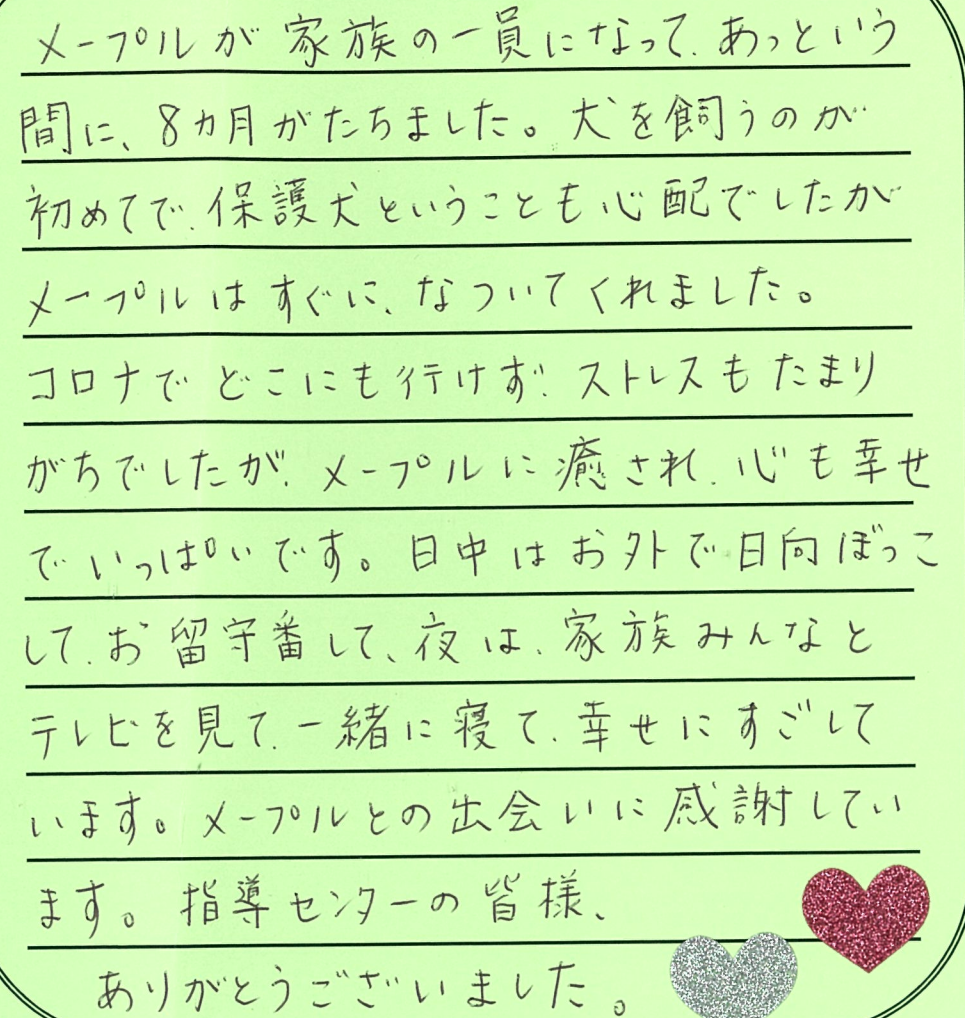 メープルが家族の一員になって、あっという
間に、8カ月がたちました。犬を飼うのが
初めてで、保護犬ということも心配でしたが
メープルはすぐに、なついてくれました。
コロナでどこにも行けず、ストレスもたまり
がちでしたが、メープルに癒され、心も幸せ
でいっぱいです。日中はお外で日向ぼっこ
して、お留守番して、夜は、家族みんなと
テレビを見て、一緒に寝て、幸せにすごして
います。メープルとの出会いに感謝してい
ます。指導センターの皆様、
ありがとうございました。